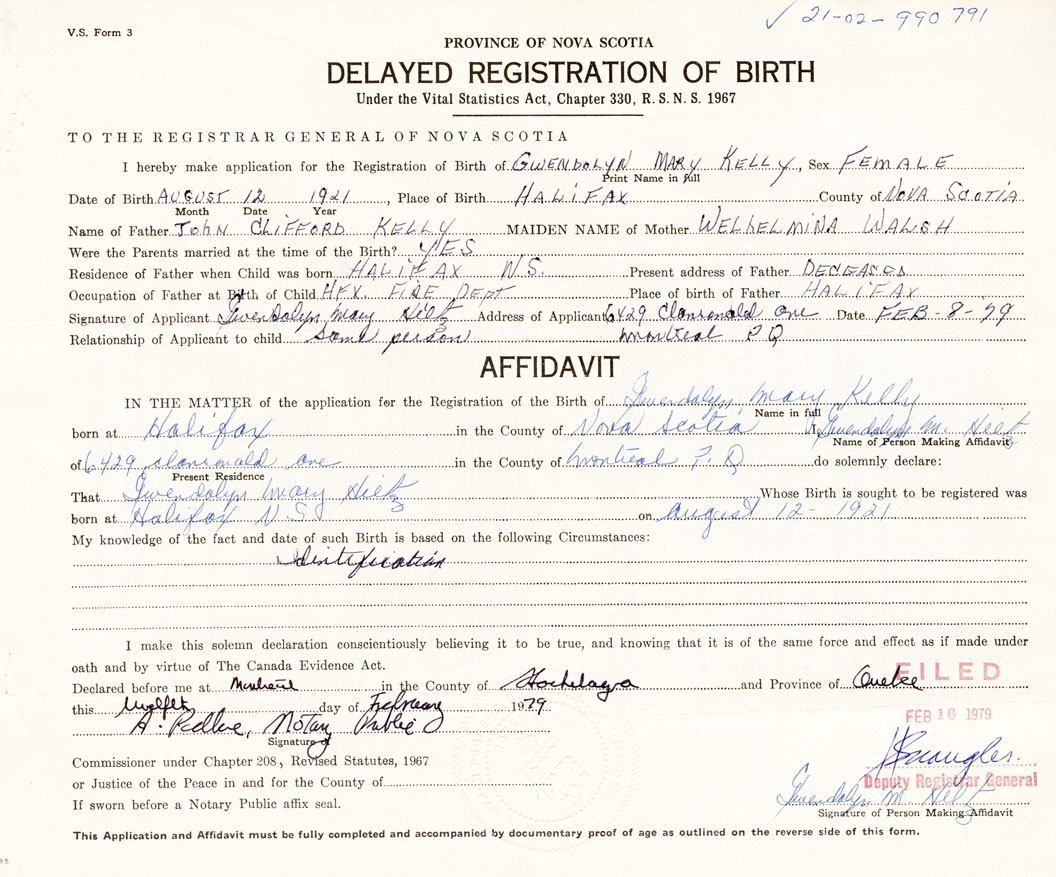 ✓ 21-02-990 791
V.S. Form 3
PROVINCE OF NOVA SCOTIA
DELAYED REGISTRATION OF BIRTH
Under the Vital Statistics Act, Chapter 330, R.S.N.S. 1967
TO THE REGISTRAR GENERAL OF NOVA SCOTIA
I hereby make application for the Registration of Birth of GWENDOLYN MARY KELLY, Sex FEMALE
Print Name in full
Date of Birth AUGUST 12 1921, Place of Birth HALIFAX County of NOVA SCOTIA
Month Date Year
Name of Father JOHN CLIFFORD KELLY MAIDEN NAME of Mother WELHELMINA WALSH
Were the Parents married at the time of the Birth? YES
Residence of Father when Child was born HALIFAX N.S. Present address of Father DECEASED
Occupation of Father at Birth of Child HFX. FIRE DEPT Place of birth of Father HALIFAX
Signature of Applicant Gwendolyn Mary Hiltz Address of Applicant 6429 Clanranald ave Date FEB-8-79
Relationship of Applicant to child Same person Montreal P Q
AFFIDAVIT
IN THE MATTER of the application for the Registration of the Birth of Gwendolyn Mary Kelly
Name in full
born at Halifax in the County of Nova Scotia I, Gwendolyn M. Hiltz
Name of Person Making Affidavit
of 6429 clanranald ave in the County of Montreal P.Q do solemnly declare:
Present Residence
That Gwendolyn Mary Hiltz Whose Birth is sought to be registered was
born at Halifax N S on august 12- 1921
My knowledge of the fact and date of such Birth is based on the following Circumstances:
Identification
I make this solemn declaration conscientiously believing it to be true, and knowing that it is of the same force and effect as if made under
oath and by virtue of The Canada Evidence Act.
Declared before me at Montreal in the County of Hochelaga and Province of Quebec
FILED
this twelfth day of February 1979
FEB 16 1979
A. Notary Public
Signature of
Commissioner under Chapter 208, Revised Statutes, 1967
Deputy Registrar General
or Justice of the Peace in and for the County of
Gwendolyn M. Hiltz
If sworn before a Notary Public affix seal.
Signature of Person Making Affidavit
This Application and Affidavit must be fully completed and accompanied by documentary proof of age as outlined on the reverse side of this form.